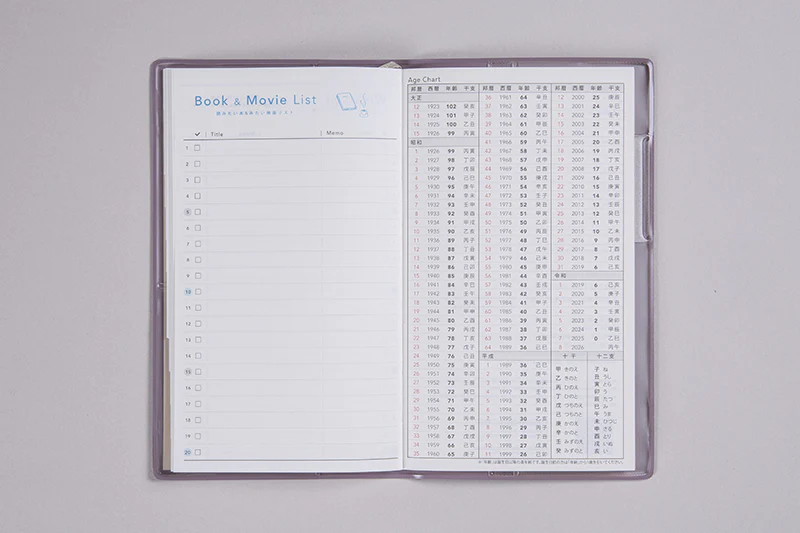 Book & Movie List
読みたい本&見たい映画リスト
✓ Title Memo
1
2
3
4
5
6
7
8
9
10
11
12
13
14
15
16
17
18
19
20
Age Chart
邦暦 西暦 年齢 干支
大正
12 1923 102 癸亥
13 1924 101 甲子
14 1925 100 乙丑
15 1926 99 丙寅
昭和
1 1926 99 丙寅
2 1927 98 丁卯
3 1928 97 戊辰
4 1929 96 己巳
5 1930 95 庚午
6 1931 94 辛未
7 1932 93 壬申
8 1933 92 癸酉
9 1934 91 甲戌
10 1935 90 乙亥
11 1936 89 丙子
12 1937 88 丁丑
13 1938 87 戊寅
14 1939 86 己卯
15 1940 85 庚辰
16 1941 84 辛巳
17 1942 83 壬午
18 1943 82 癸未
19 1944 81 甲申
20 1945 80 乙酉
21 1946 79 丙戌
22 1947 78 丁亥
23 1948 77 戊子
24 1949 76 己丑
25 1950 75 庚寅
26 1951 74 辛卯
27 1952 73 壬辰
28 1953 72 癸巳
29 1954 71 甲午
30 1955 70 乙未
31 1956 69 丙申
32 1957 68 丁酉
33 1958 67 戊戌
34 1959 66 己亥
35 1960 65 庚子
邦暦 西暦 年齢 干支
36 1961 64 辛丑
37 1962 63 壬寅
38 1963 62 癸卯
39 1964 61 甲辰
40 1965 60 乙巳
41 1966 59 丙午
42 1967 58 丁未
43 1968 57 戊申
44 1969 56 己酉
45 1970 55 庚戌
46 1971 54 辛亥
47 1972 53 壬子
48 1973 52 癸丑
49 1974 51 甲寅
50 1975 50 乙卯
51 1976 49 丙辰
52 1977 48 丁巳
53 1978 47 戊午
54 1979 46 己未
55 1980 45 庚申
56 1981 44 辛酉
57 1982 43 壬戌
58 1983 42 癸亥
59 1984 41 甲子
60 1985 40 乙丑
61 1986 39 丙寅
62 1987 38 丁卯
63 1988 37 戊辰
64 1989 36 己巳
平成
1 1989 36 己巳
2 1990 35 庚午
3 1991 34 辛未
4 1992 33 壬申
5 1993 32 癸酉
6 1994 31 甲戌
7 1995 30 乙亥
8 1996 29 丙子
9 1997 28 丁丑
10 1998 27 戊寅
11 1999 26 己卯
邦暦 西暦 年齢 干支
12 2000 25 庚辰
13 2001 24 辛巳
14 2002 23 壬午
15 2003 22 癸未
16 2004 21 甲申
17 2005 20 乙酉
18 2006 19 丙戌
19 2007 18 丁亥
20 2008 17 戊子
21 2009 16 己丑
22 2010 15 庚寅
23 2011 14 辛卯
24 2012 13 壬辰
25 2013 12 癸巳
26 2014 11 甲午
27 2015 10 乙未
28 2016 9 丙申
29 2017 8 丁酉
30 2018 7 戊戌
31 2019 6 己亥
令和
1 2019 6 己亥
2 2020 5 庚子
3 2021 4 辛丑
4 2022 3 壬寅
5 2023 2 癸卯
6 2024 1 甲辰
7 2025 0 乙巳
8 2026 丙午
十干
甲 きのえ
乙 きのと
丙 ひのえ
丁 ひのと
戊 つちのえ
己 つちのと
庚 かのえ
辛 かのと
壬 みずのえ
癸 みずのと
十二支
子 ね
丑 うし
寅 とら
卯 う
辰 たつ
巳 み
午 うま
未 ひつじ
申 さる
酉 とり
戌 いぬ
亥 い